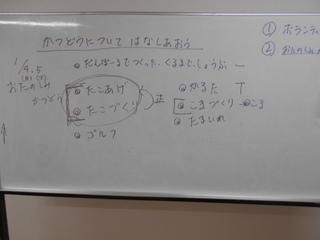 かつどうについて はなしあおう
① ボランティ
② おたのしみ
1/4, 5
(月)(火)
おたのしみ
かつどう
◎ だんぼーるでつくった、くるまでしょうぶ 一
◎ たこあげ
◎ たこづくり
正
◎ ゴルフ
◎ かるた T
◎ こまづくり → ◎こま
◎ たまいれ